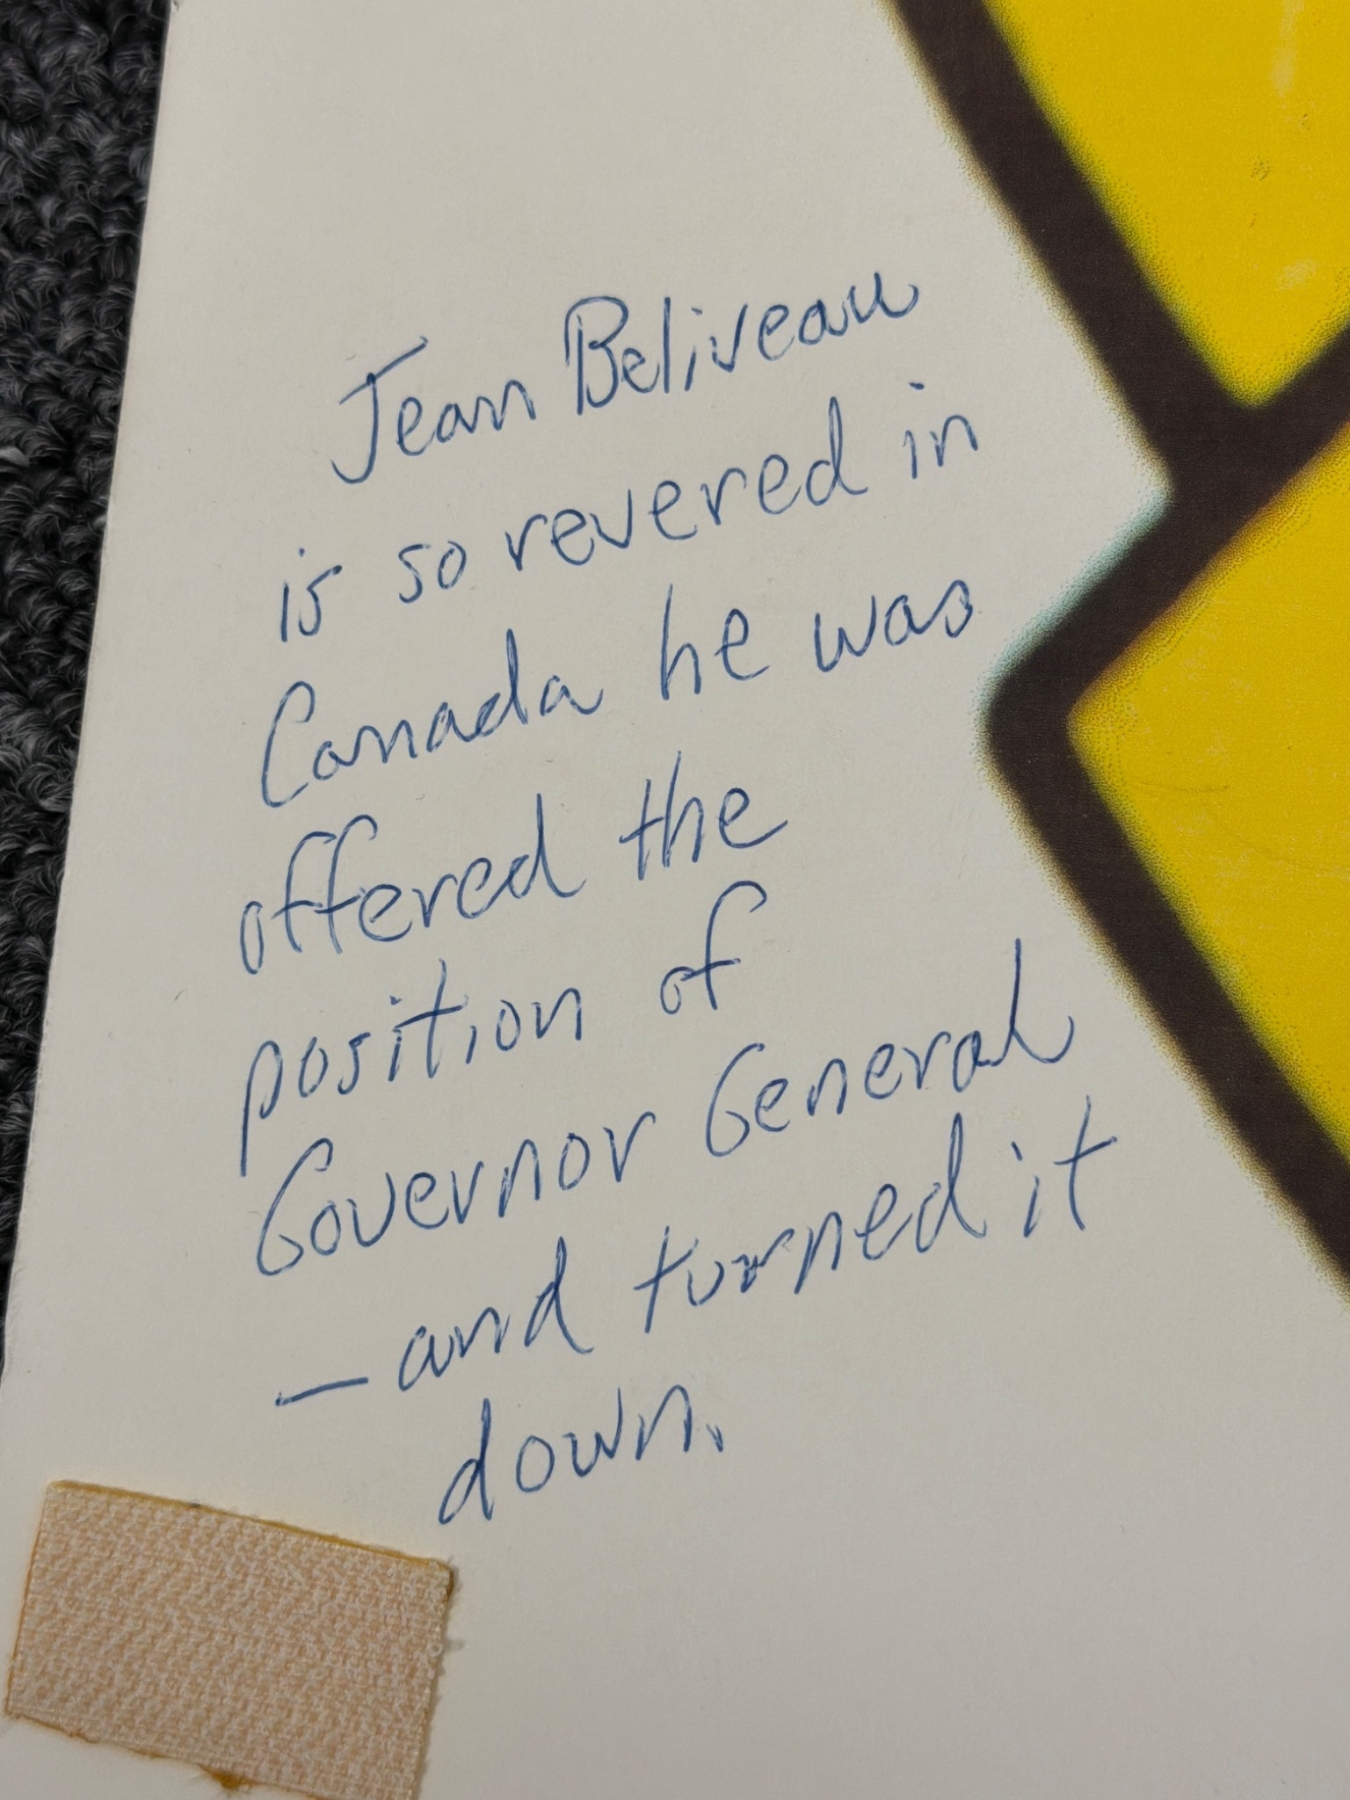 Jean Beliveau
is so revered in
Canada he was
offered the
position of
Governor General
— and turned it
down.